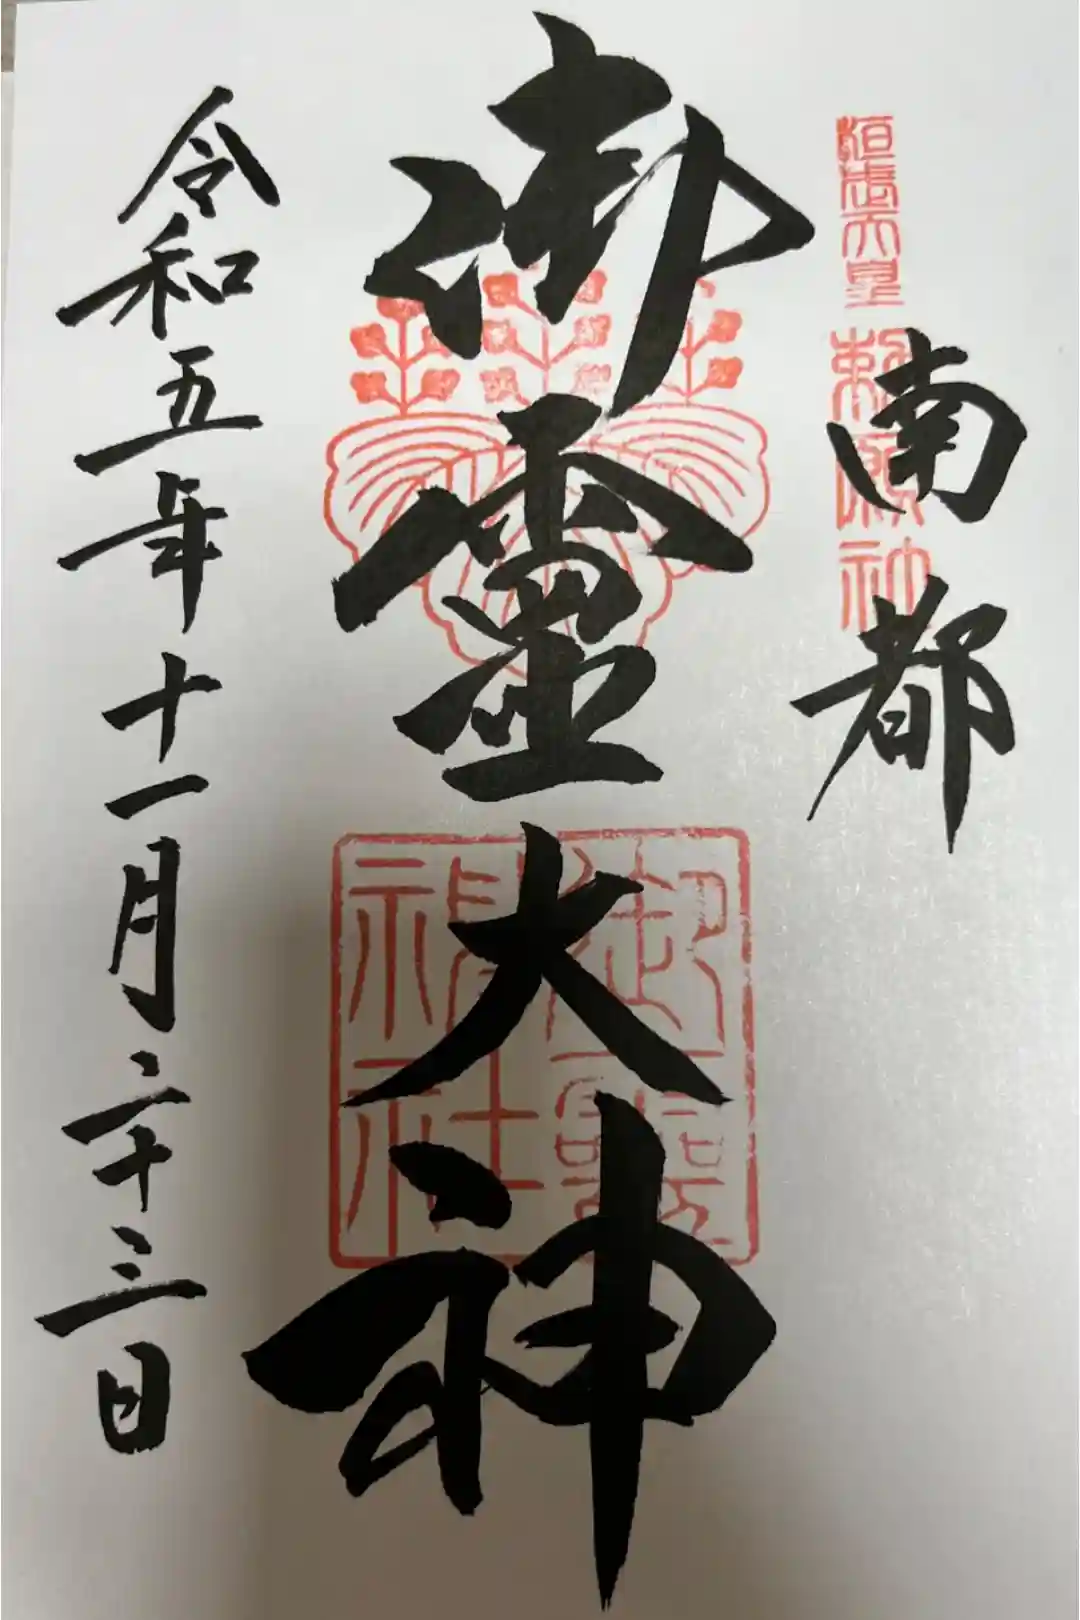 桓武天皇勅願神
南都
御霊大神
御霊神社
令和五年十一月二十三日